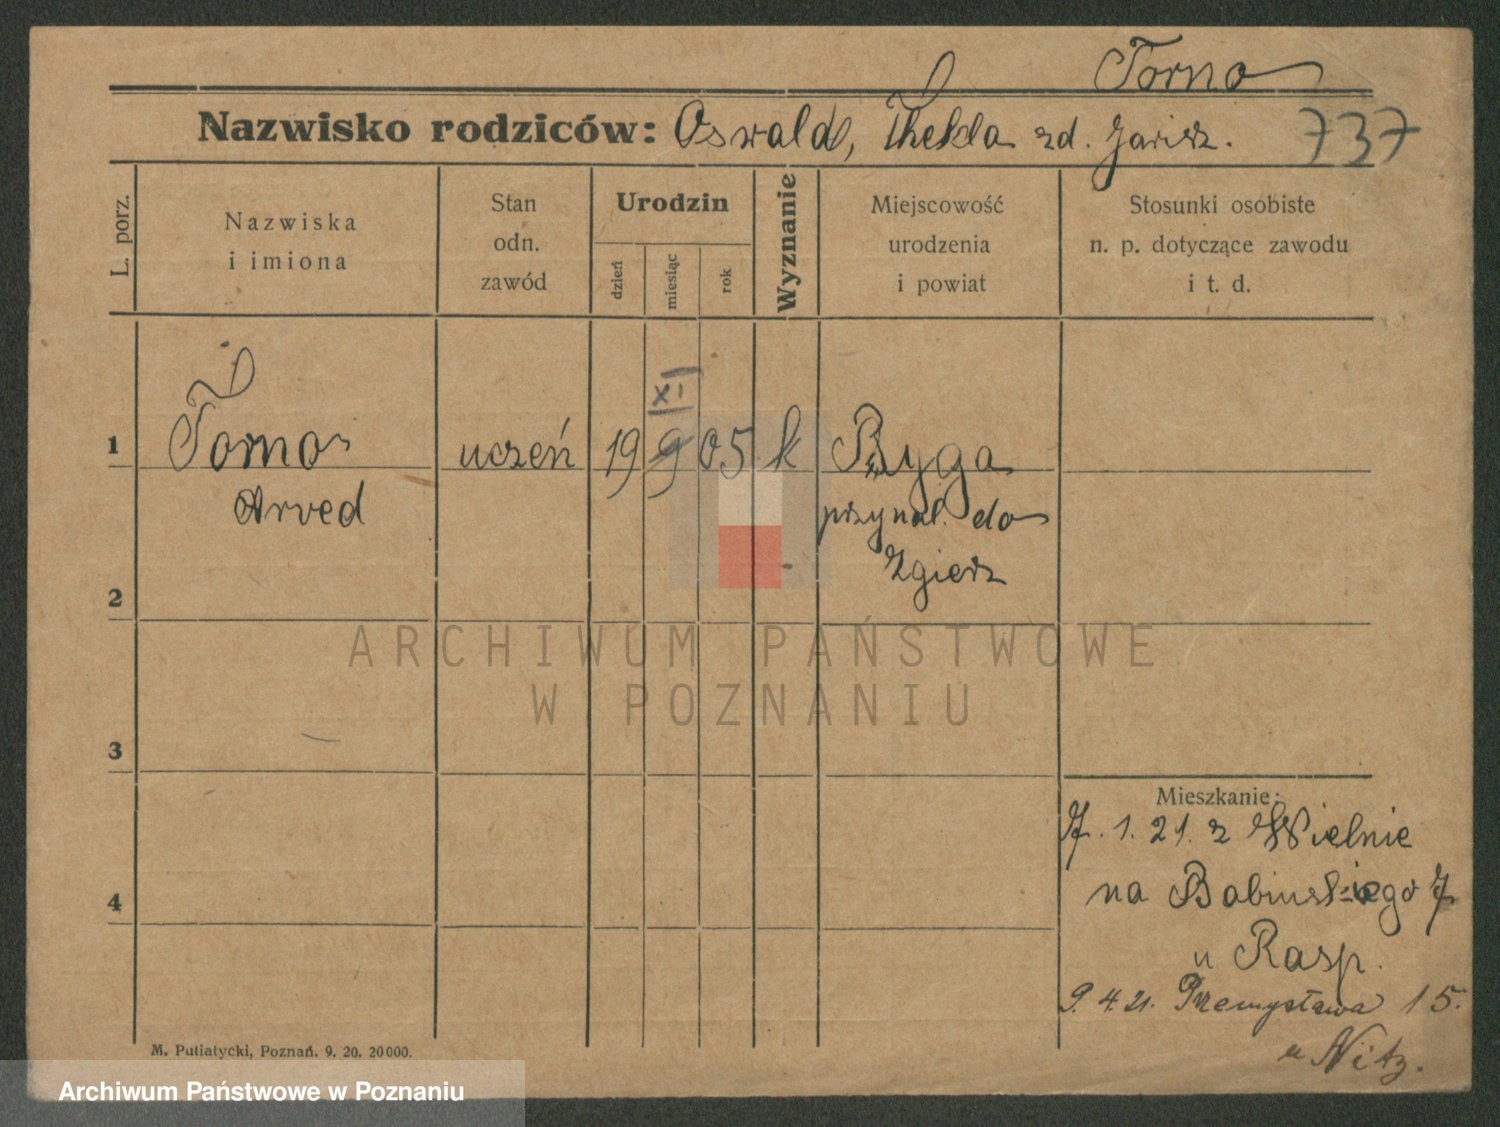 Torno
Nazwisko rodziców: Oswald, Thekla zd.
737
L. porz.
Nazwiska
i imiona
Stan
odn.
zawód
Urodzin
dzień
miesiąc
rok
Wyznanie
Miejscowość
urodzenia
i powiat
Stosunki osobiste
n. p. dotyczące zawodu
i t. d.
XI
1 Torno uczeń 19 9 05 k Ryga
Arved przynal. do
Zgierz
2
3
4
Mieszkanie:
7. 1. 21. z Wielnie
na Babinskiego 7
u Rasp.
9. 4. 21. Przemysława 15.
u Nitz.
M. Putiatycki, Poznań. 9. 20. 20000.
ARCHIWUM PAŃSTWOWE
W POZNANIU
Archiwum Państwowe w Poznaniu